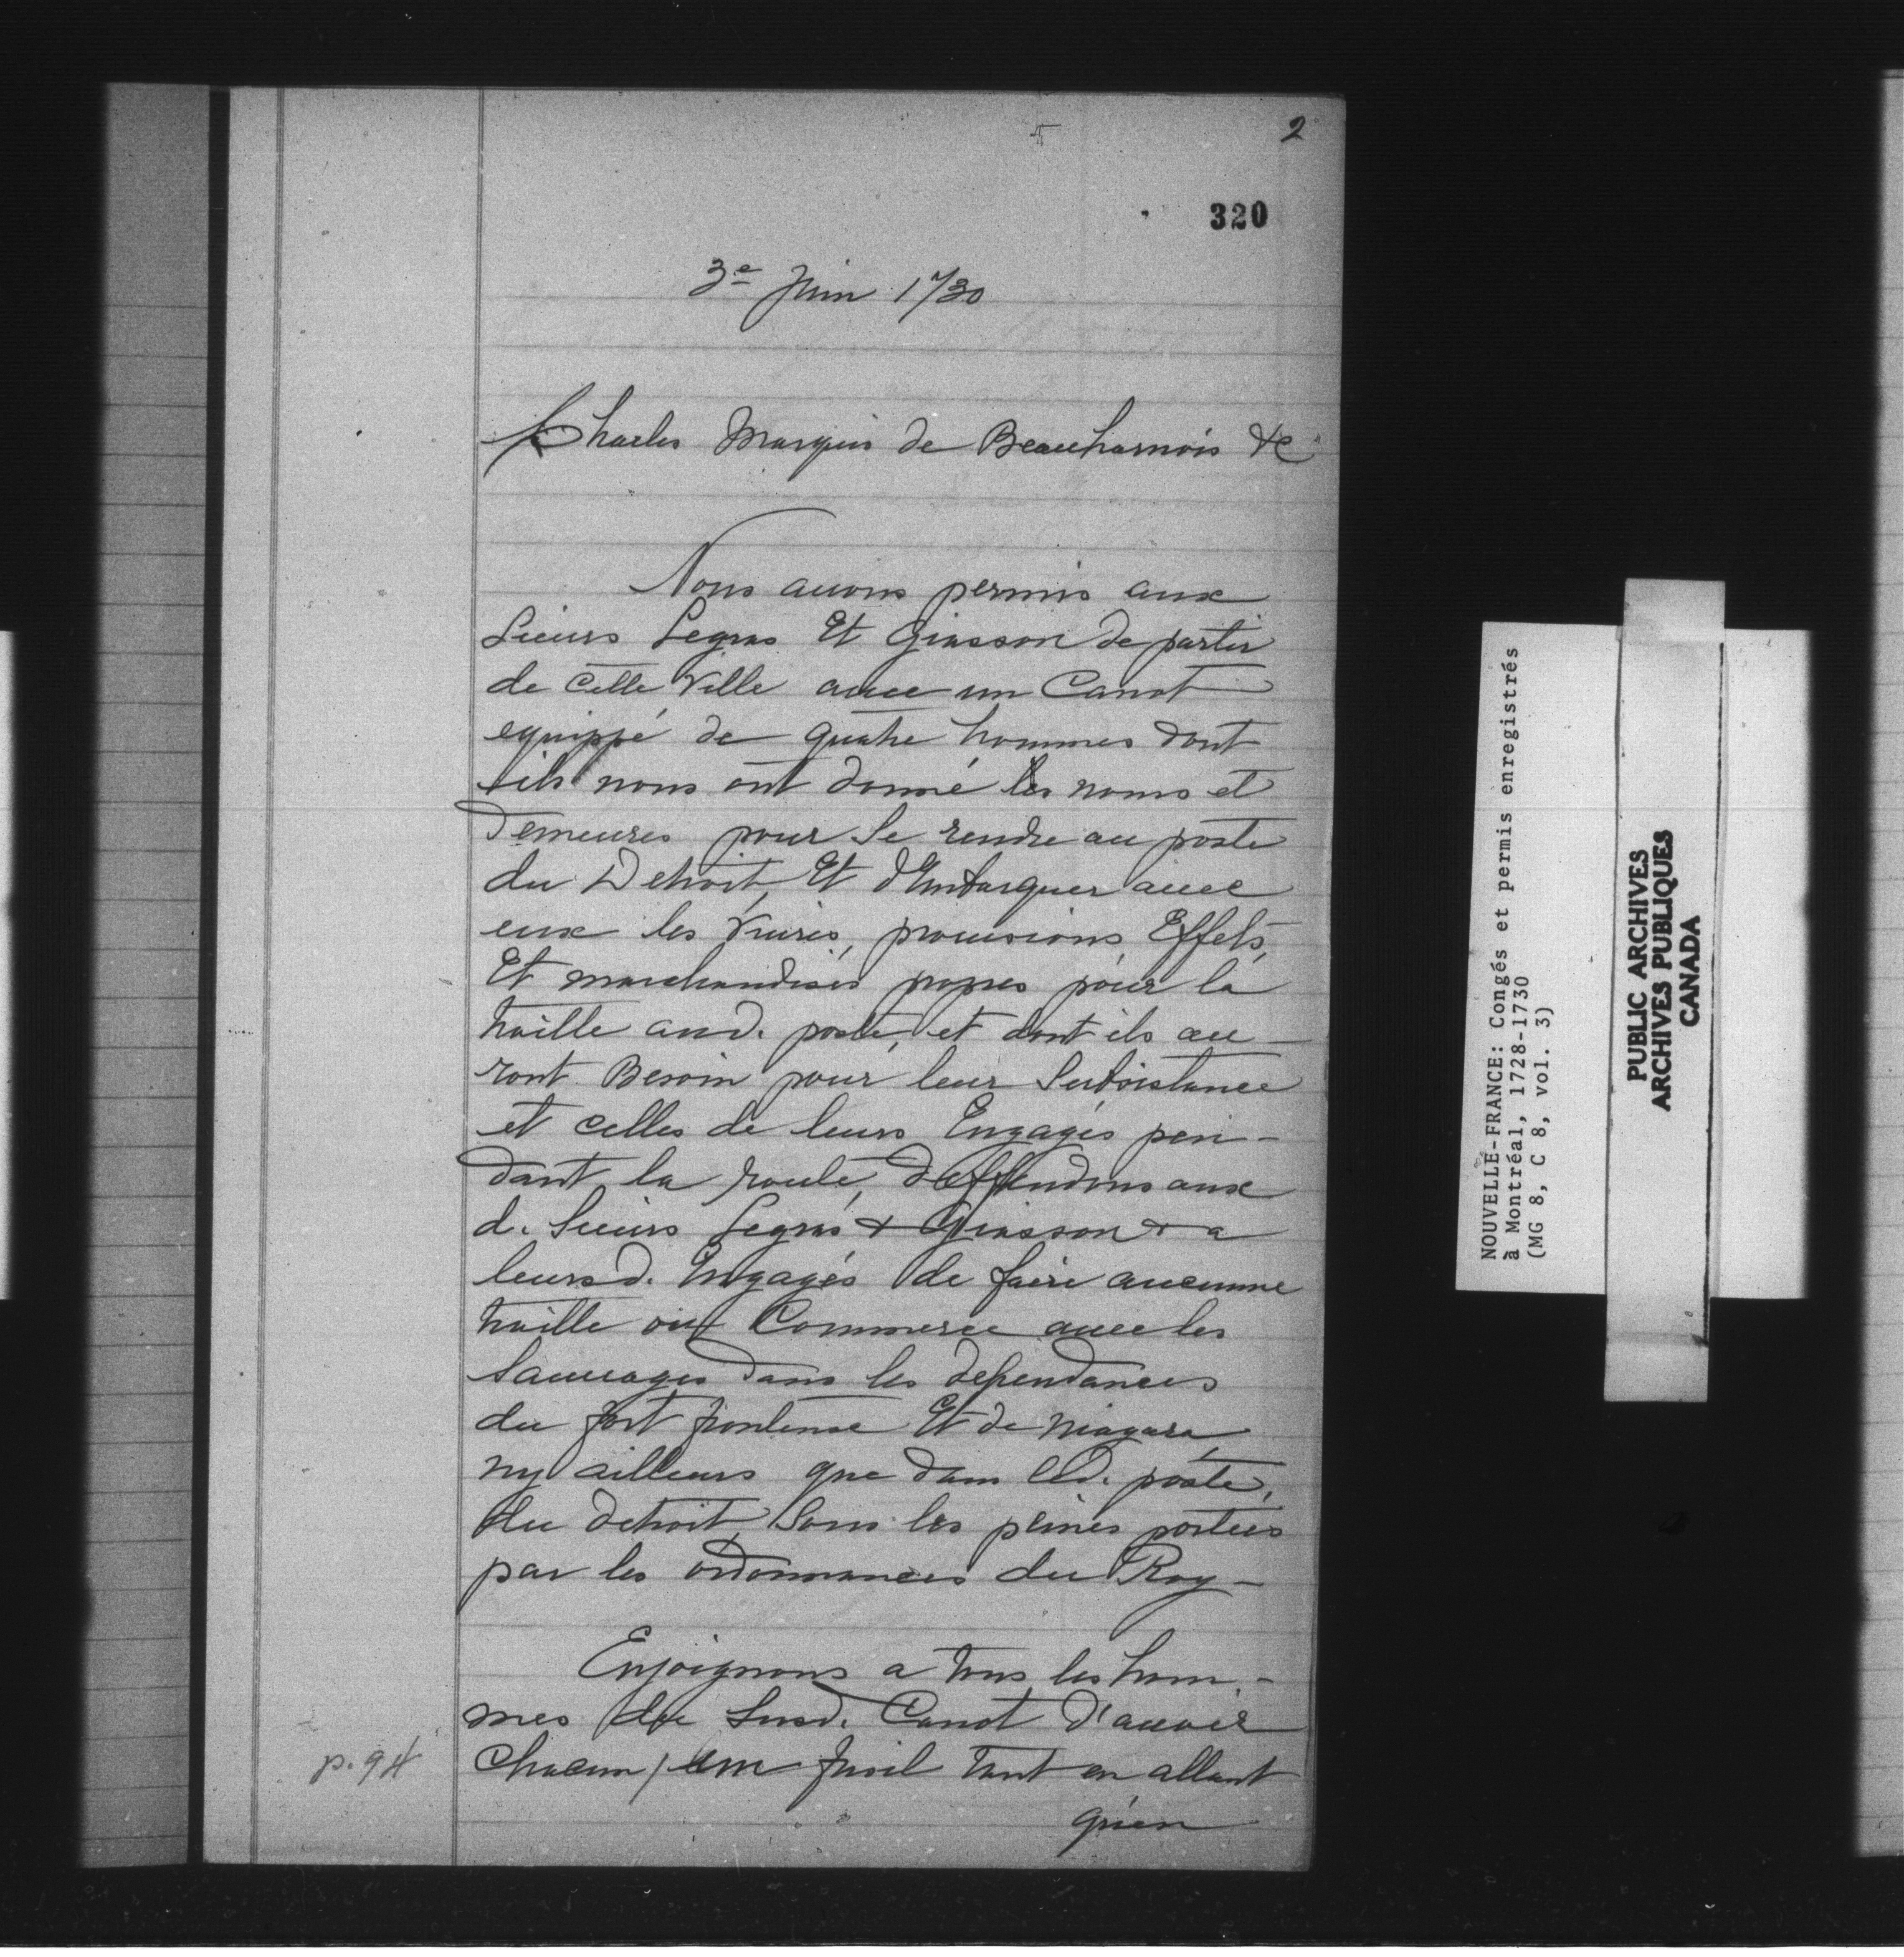 2
320
3e Juin 1730
Charles Marquis de Beauharnois &c
Nous auons permis aux
Sieurs Legras Et Giasson de partir
de cette Ville auec un Canot
equippé de quatre hommes dont
ils nous ont donné les noms et
demeures pour Se rendre au poste
du Detroit, Et d'Embarquer auec
eux les Viures, prouisions, Effets,
Et marchandises propres pour la
traitte aud. poste, et dont ils au-
ront Besoin pour leur Subsistance
et celles de leurs Engagés pen-
dant la route, deffendons aux
d. Sieurs Legras & Giasson & a
leursd. Engagés de faire aucunne
traitte ou Commerce auec les
Sauuages dans les dependances
du fort frontenac Et de Niagara,
ny ailleurs que dans led. poste,
du detroit, Sous les peines portées
par les ordonnances du Roy-
Enjoignons a tous les hom-
mes du Susd. Canot d'auoir
Chacun / un fusil tant en allant
qu'en
p. 94
NOUVELLE-FRANCE: Congés et permis enregistrés
à Montréal, 1728-1730
(MG 8, C 8, vol. 3)
PUBLIC ARCHIVES
ARCHIVES PUBLIQUES
CANADA